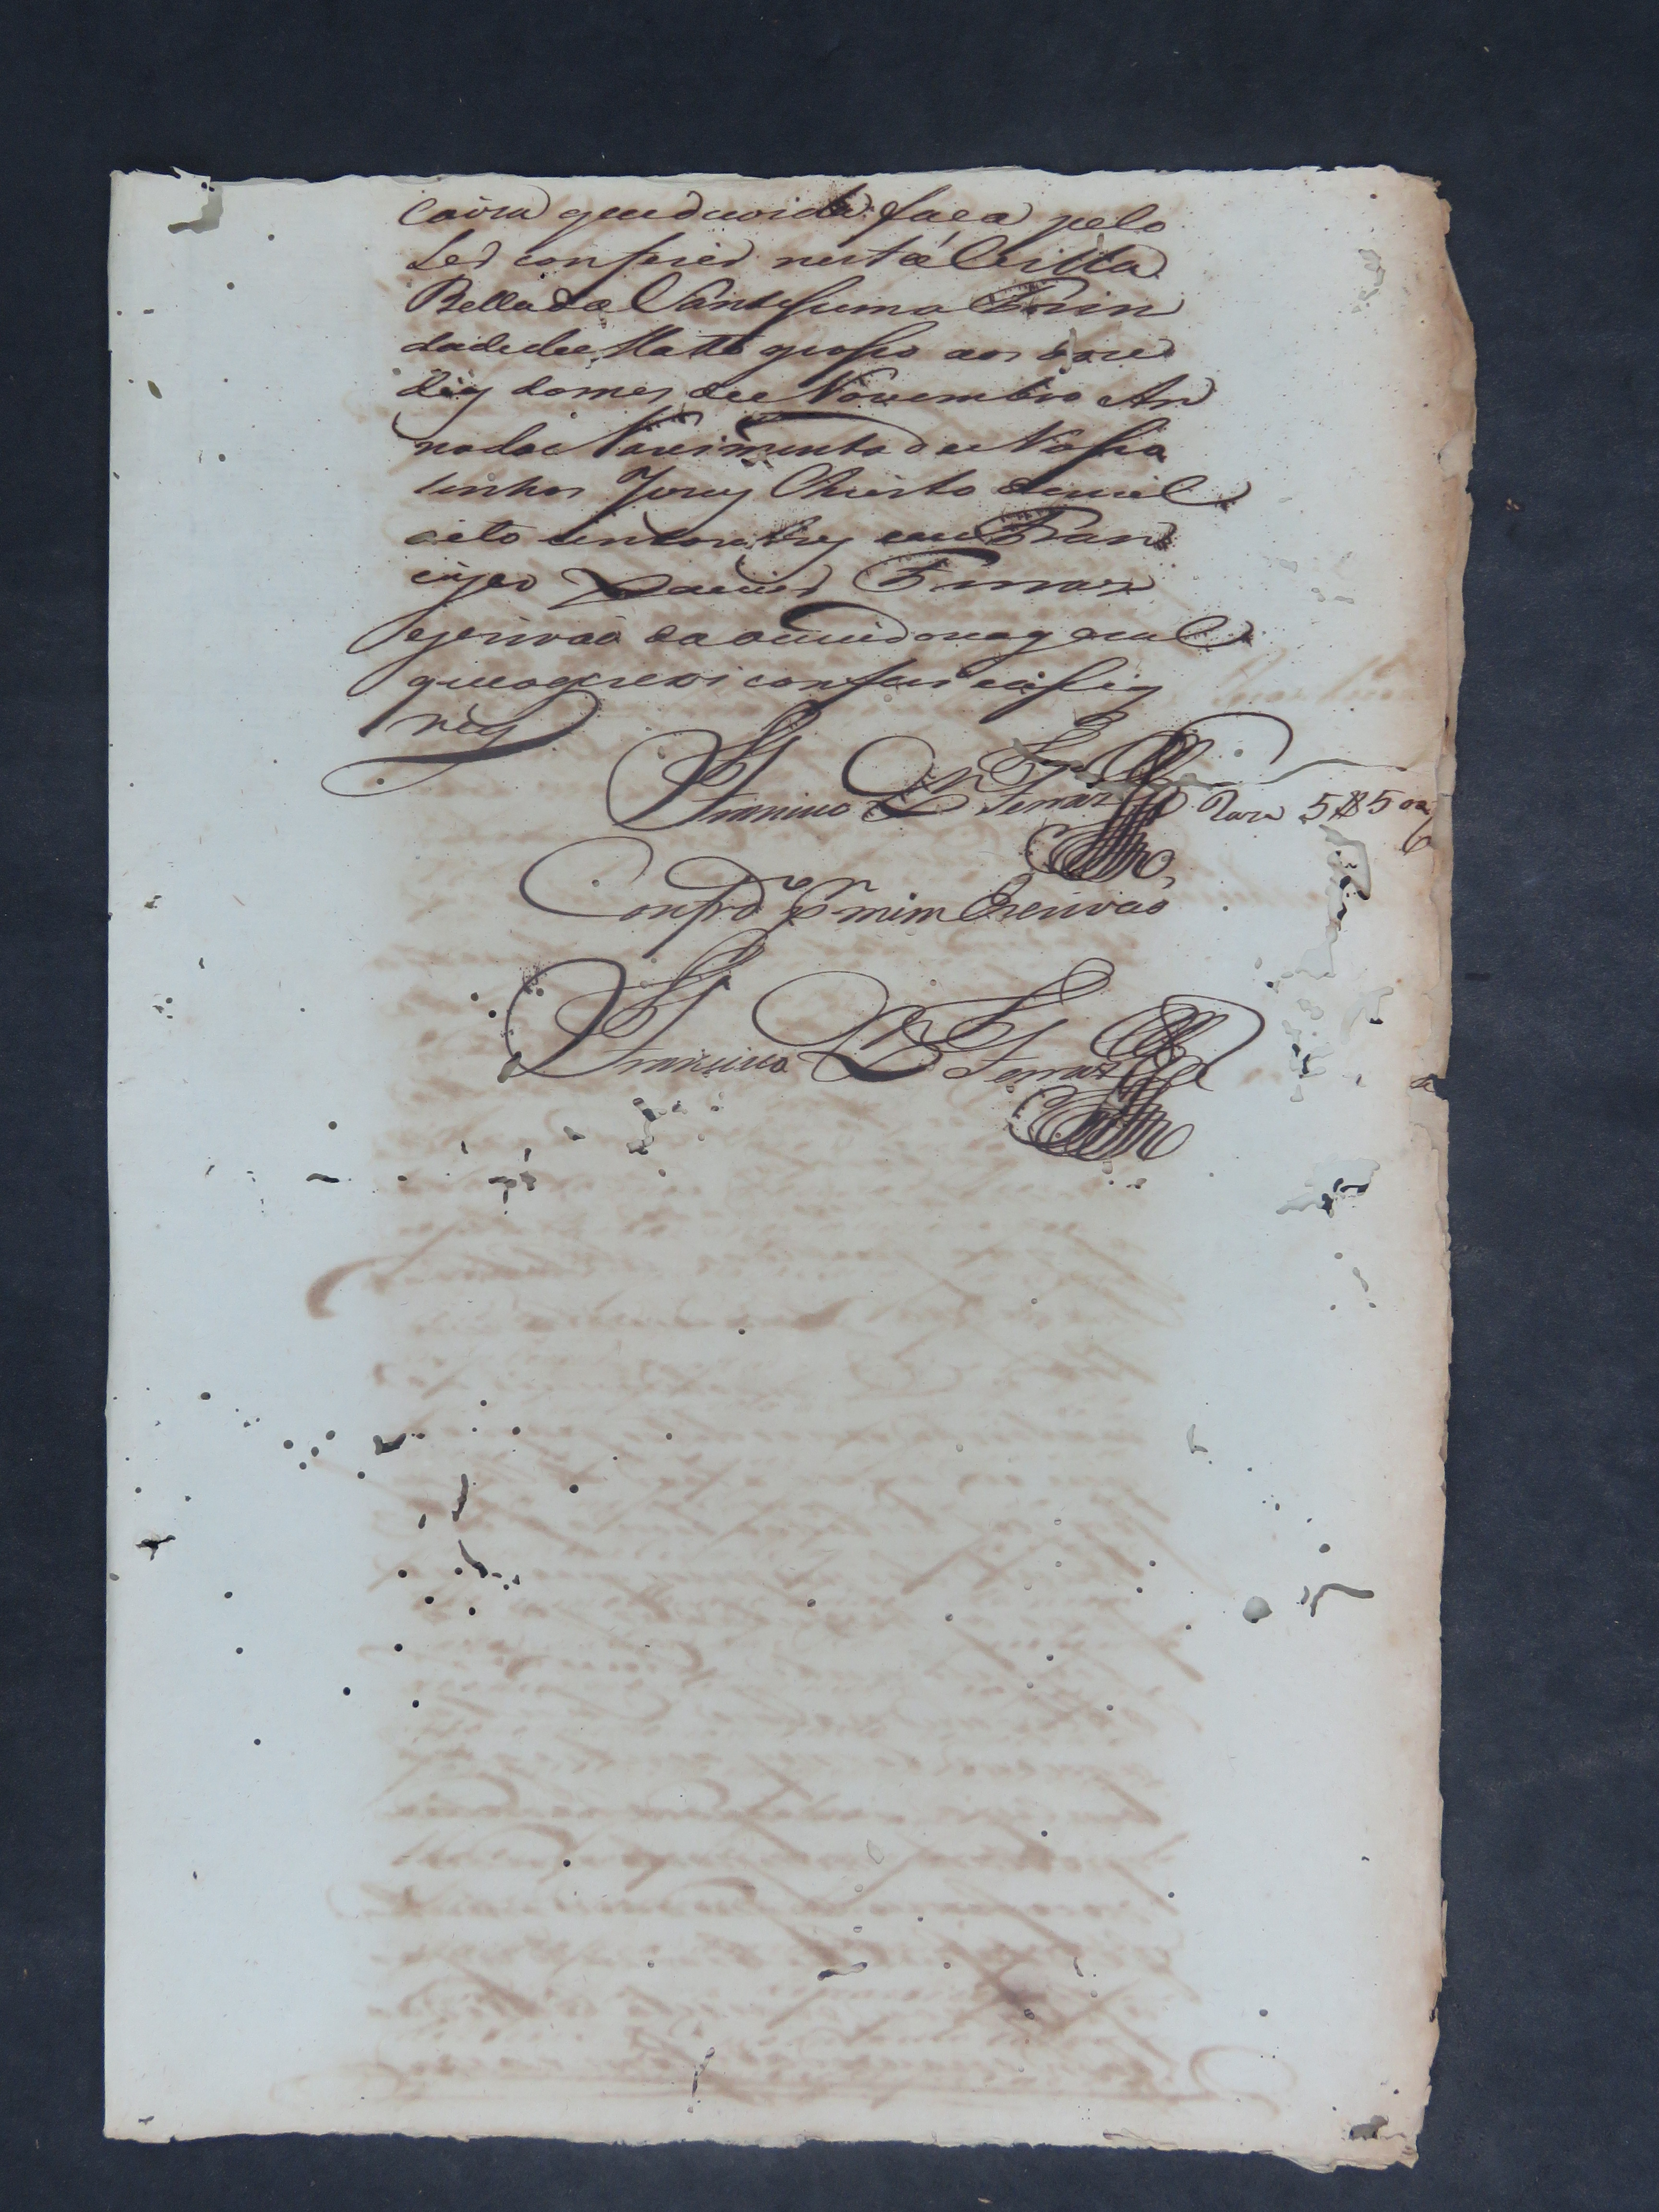 Caoza que duvida faça pelo
Ler conferir nesta Villa
Bella da Santissima Trin
dade de Matto grosso aos doze
dias do mes de Novembro An
no do Nascimento de Nosso
Senhor Jesus Christo de mil
oito centos e tres eu Fran
cisco Xavier Ferraz
escrivaõ da ouvidoria geral
que o escrevi conferi e asig
ney
Francisco X.er Ferraz
Raza 5$500
Confrd.o p.r mim Escrivaõ
Francisco X.er Ferraz